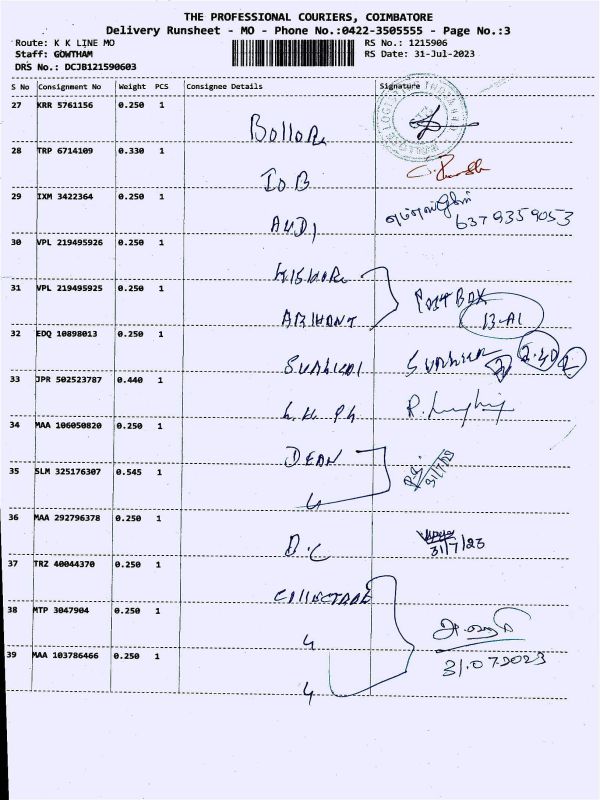 THE PROFESSIONAL COURIERS, COIMBATORE
Delivery Runsheet - MO - Phone No.:0422-3505555 - Page No.:3
Route: K K LINE MO
RS No.: 1215906
Staff: GOWTHAM
RS Date: 31-Jul-2023
DRS No.: DCJB121590603
S No Consignment No Weight PCS Consignee Details Signature
27 KRR 5761156 0.250 1
28 TRP 6714109 0.330 1
IOB
29 IXM 3422364 0.250 1
AUDI
6379359053
30 VPL 219495926 0.250 1
KISHOR
31 VPL 219495925 0.250 1
POST BOX
ARIHANT
13-A1
32 EDQ 10898013 0.250 1
2.40
33 JPR 502523787 0.440 1
34 MAA 106050820 0.250 1
DEAN
35 SLM 325176307 0.545 1
31/7/23
36 MAA 292796378 0.250 1
D.C
31/7/23
37 TRZ 40044370 0.250 1
38 MTP 3047904 0.250 1
39 MAA 103786466 0.250 1
31.07.2023